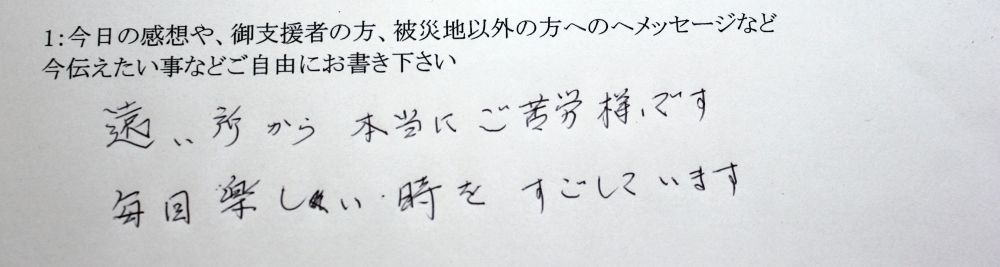 1:今日の感想や、御支援者の方、被災地以外の方へのへメッセージなど
今伝えたい事などご自由にお書き下さい
遠い所から 本当に ご苦労様です
毎回 楽しい 時を すごしています